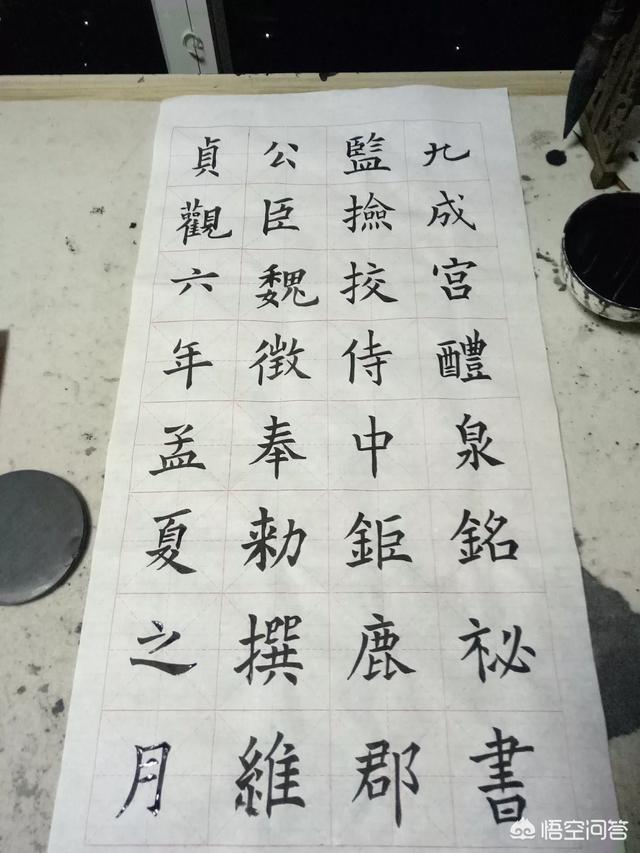 九成宮醴泉銘祕書
監撿挍侍中鉅鹿郡
公臣魏徵奉勑撰維
貞觀六年孟夏之月
悟空问答